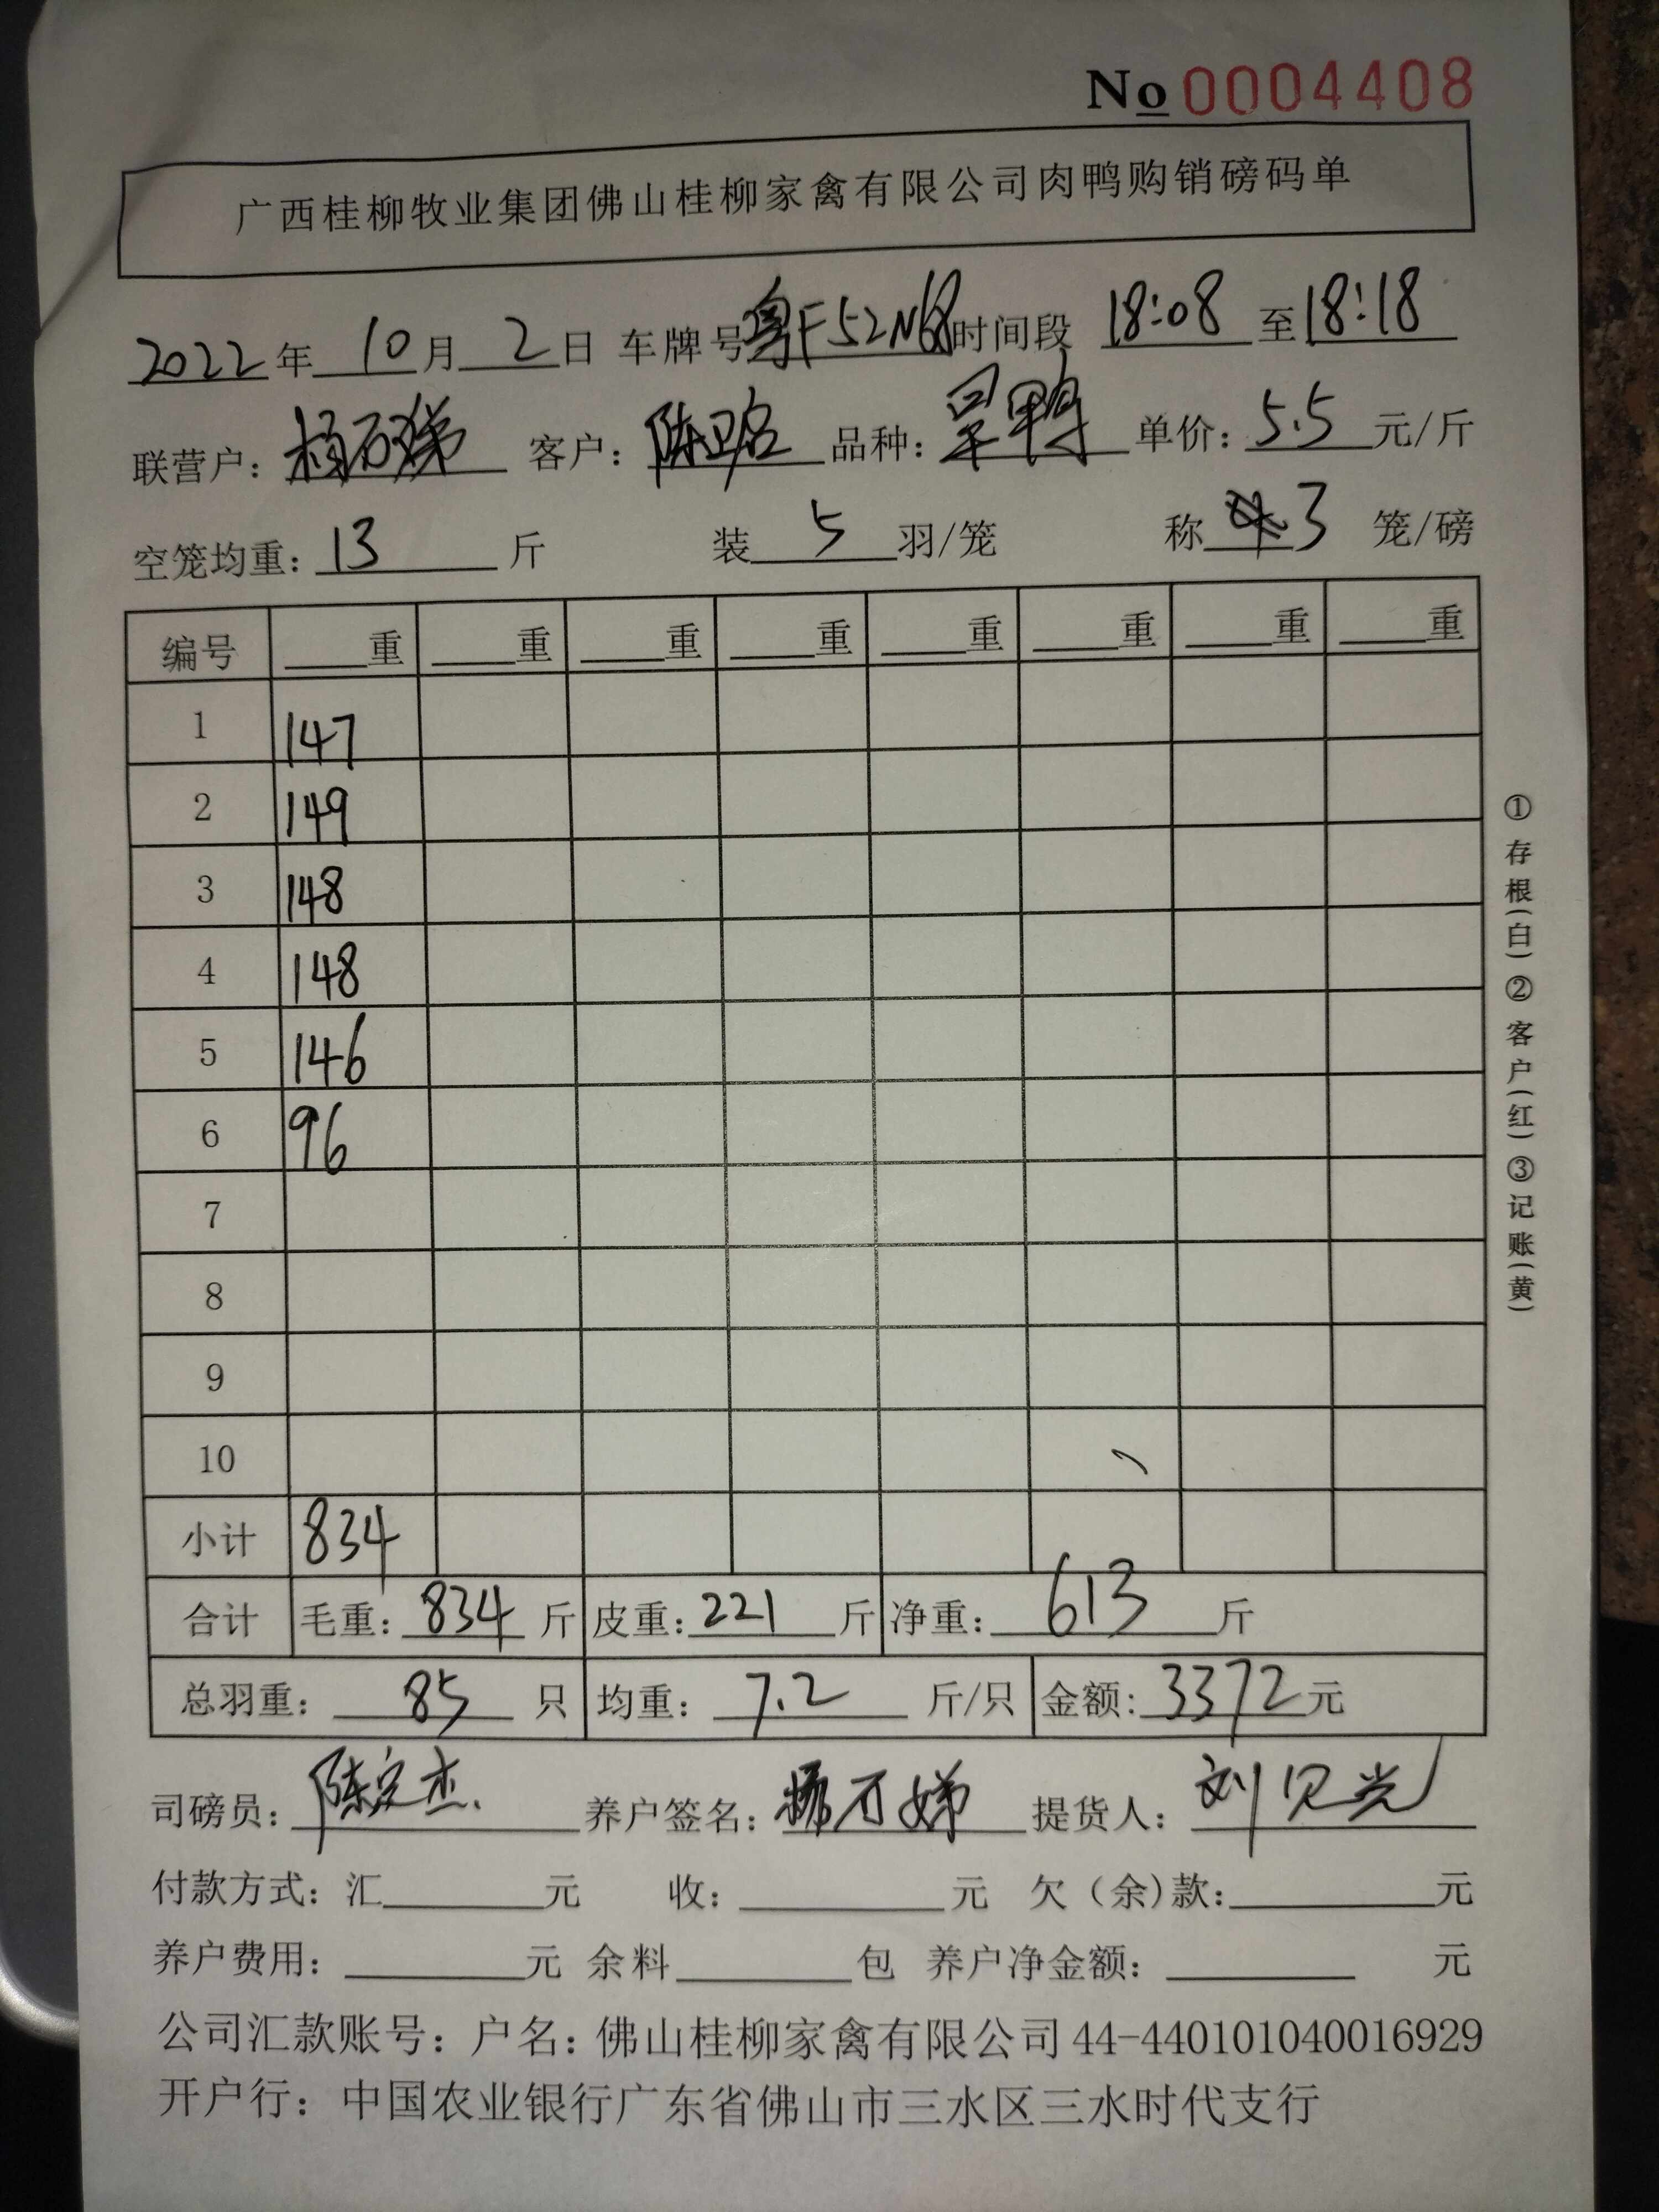 No 0004408
广西桂柳牧业集团佛山桂柳家禽有限公司肉鸭购销磅码单
2022年 10月 2日 车牌号粤F52N68时间段 18:08 至18:18
联营户: 客户: 陈 品种: 旱鸭 单价: 5.5 元/斤
空笼均重: 13 斤 装 5 羽/笼 称 3 笼/磅
编号 重 重 重 重 重 重 重 重
1 147
2 149
3 148
4 148
5 146
6 96
7
8
9
10
小计 834
合计 毛重: 834 斤 皮重: 221 斤 净重: 613 斤
总羽重: 85 只 均重: 7.2 斤/只 金额: 3372元
司磅员: 陈定杰 养户签名: 提货人: 刘贝光
付款方式: 汇 元 收: 元 欠(余)款: 元
养户费用: 元 余料 包 养户净金额: 元
公司汇款账号: 户名: 佛山桂柳家禽有限公司 44-440101040016929
开户行: 中国农业银行广东省佛山市三水区三水时代支行
①存根(白)②客户(红)③记账(黄)